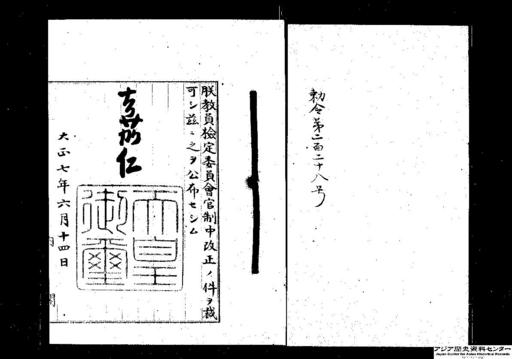 勅令第二百二十八号
朕教員檢定委員會官制中改正ノ件ヲ裁
可シ茲ニ之ヲ公布セシム
嘉仁
天皇御璽
大正七年六月十四日
アジア歴史資料センター
Japan Center for Asian Historical Records